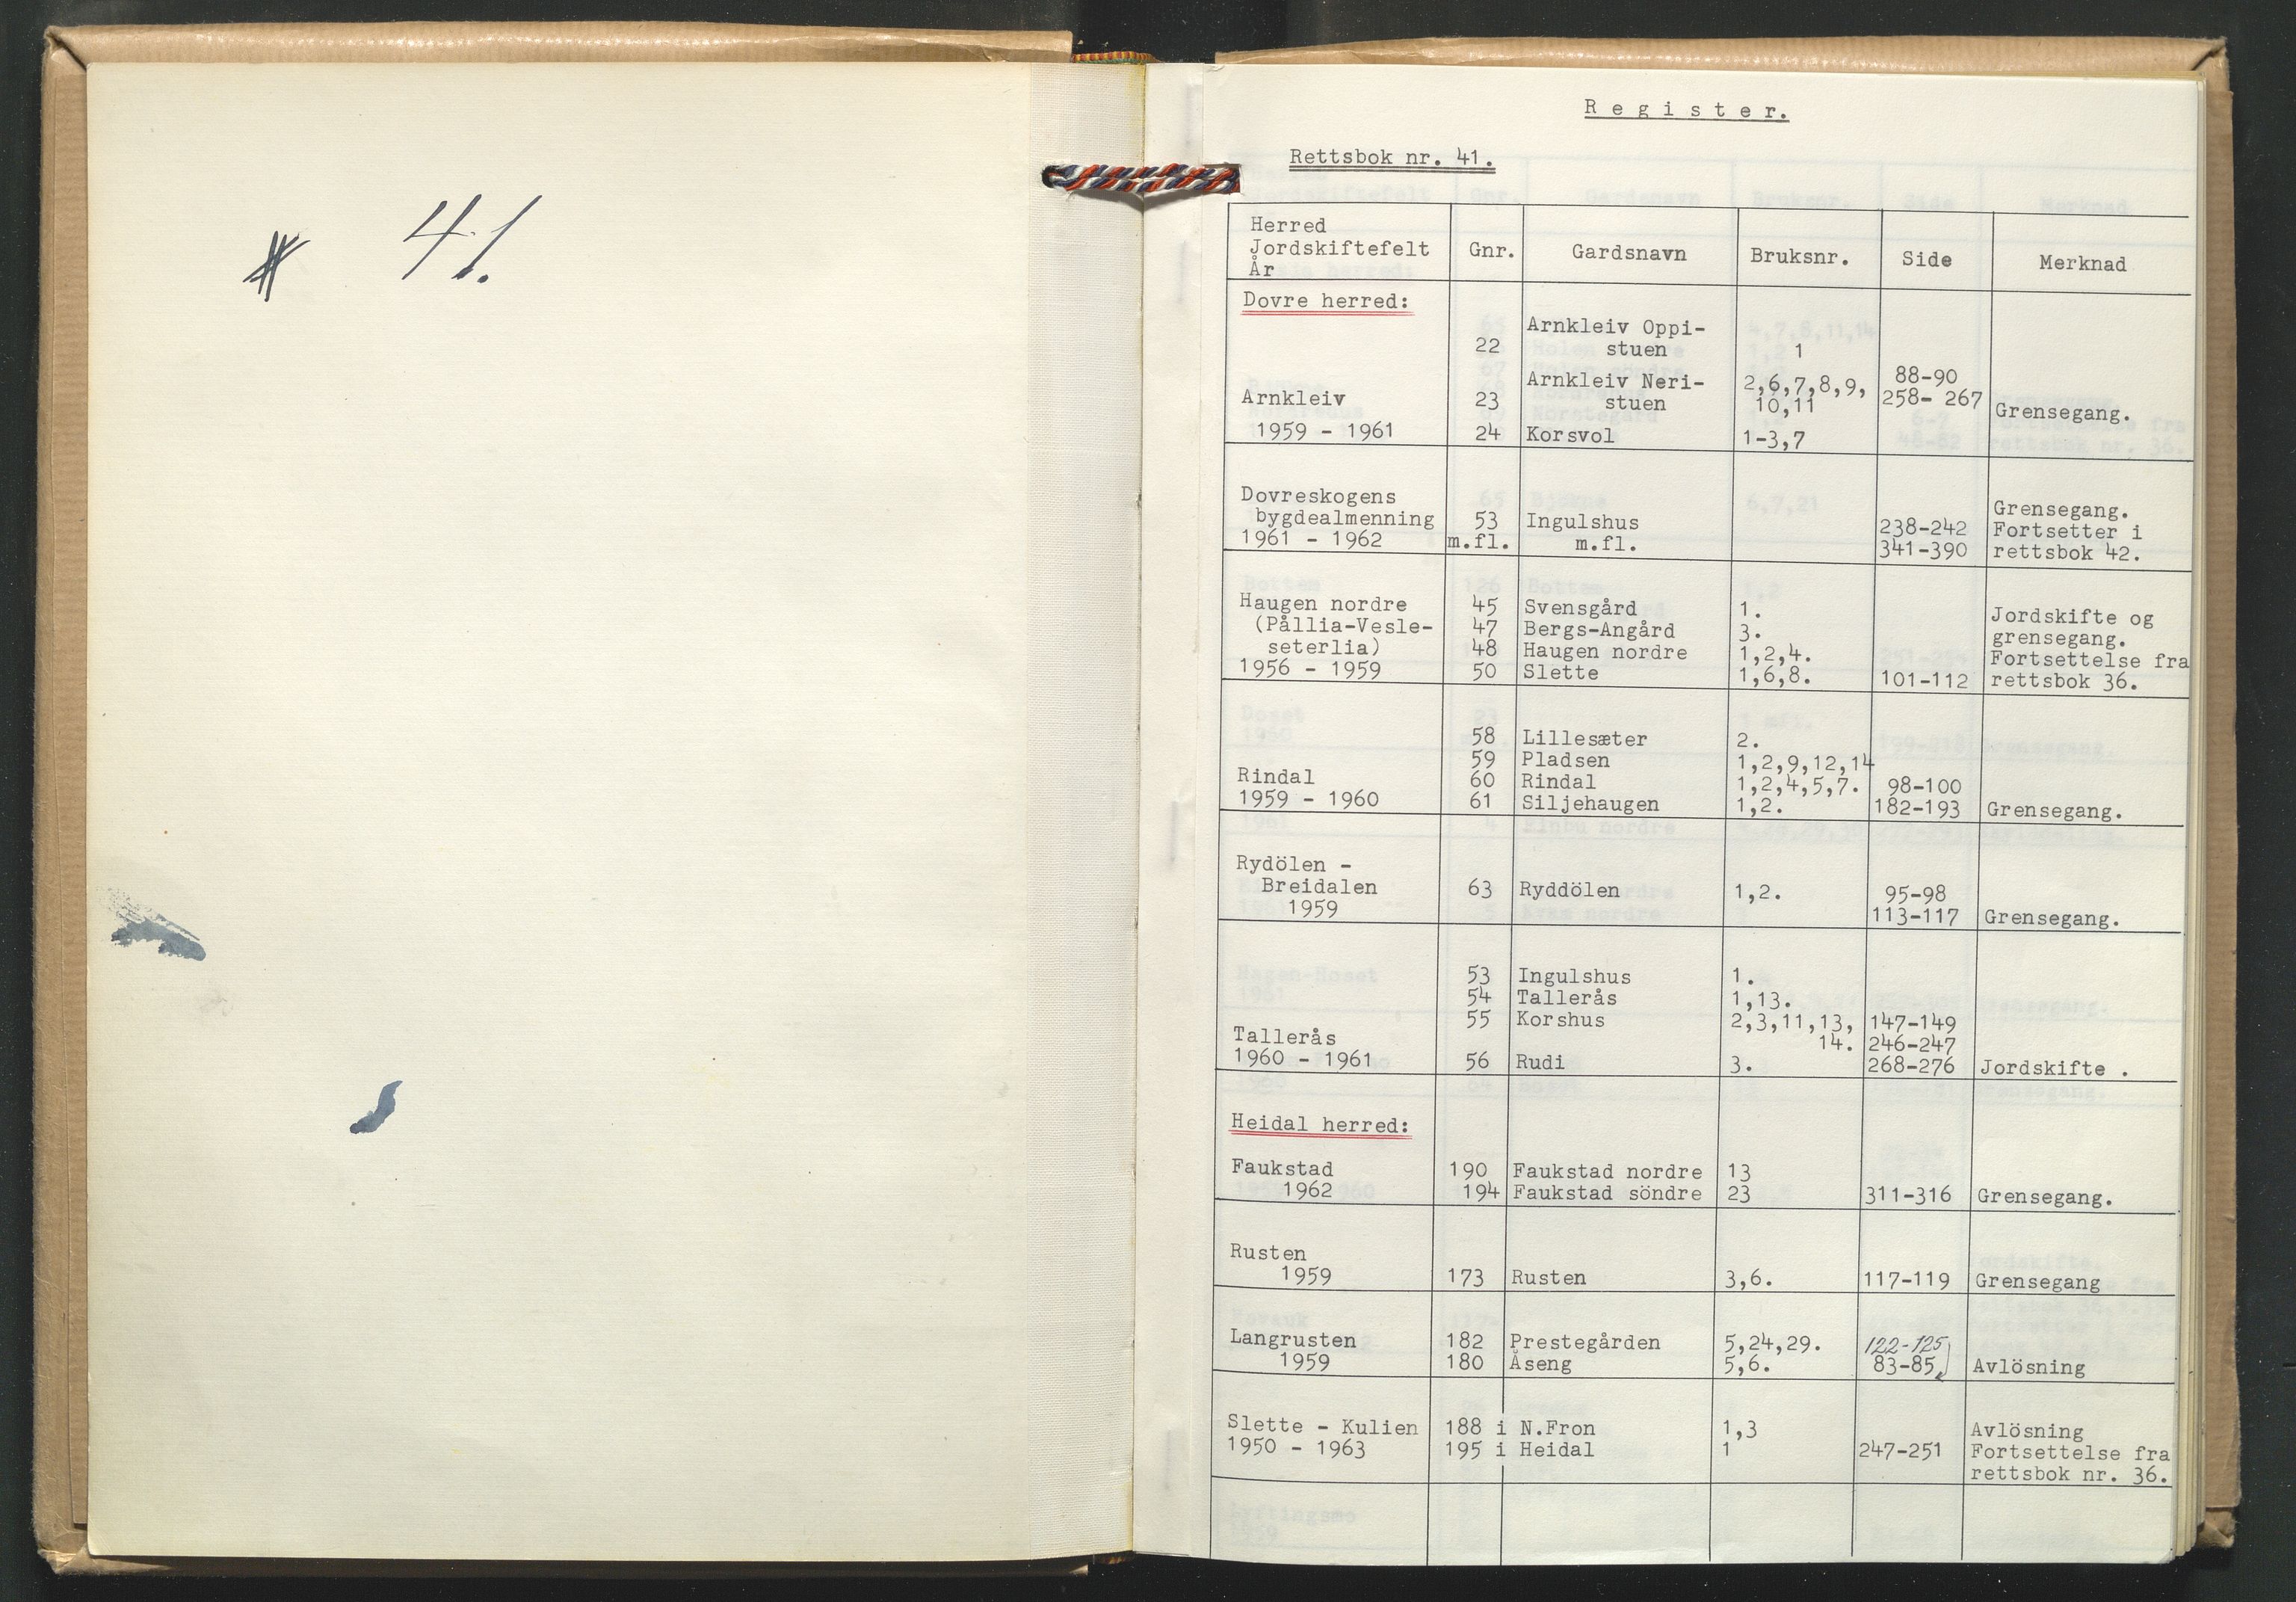 # 41.
Register.
Rettsbok nr. 41.
Herred
Jordskiftefelt
År
Gnr.
Gardsnavn
Bruksnr.
Side
Merknad
Dovre herred:
Arnkleiv Oppi-
22 stuen 1
Arnkleiv Neri- 2,6,7,8,9, 88-90
Arnkleiv 23 stuen 10,11 258- 267 Grensegang.
1959 - 1961 24 Korsvol 1-3,7
Dovreskogens Grensegang.
bygdealmenning 53 Ingulshus 238-242 Fortsetter i
1961 - 1962 m.fl. m.fl. 341-390 rettsbok 42.
Haugen nordre 45 Svensgård 1. Jordskifte og
(Pållia-Vesle- 47 Bergs-Angård 3. grensegang.
seterlia) 48 Haugen nordre 1,2,4. Fortsettelse fra
1956 - 1959 50 Slette 1,6,8. 101-112 rettsbok 36.
58 Lillesæter 2.
59 Pladsen 1,2,9,12,14
Rindal 60 Rindal 1,2,4,5,7. 98-100
1959 - 1960 61 Siljehaugen 1,2. 182-193 Grensegang.
Rydölen -
Breidalen 63 Ryddölen 1,2. 95-98
1959 113-117 Grensegang.
53 Ingulshus 1.
54 Tallerås 1,13.
55 Korshus 2,3,11,13, 147-149
Tallerås 14. 246-247
1960 - 1961 56 Rudi 3. 268-276 Jordskifte .
Heidal herred:
Faukstad 190 Faukstad nordre 13
1962 194 Faukstad söndre 23 311-316 Grensegang.
Rusten
1959 173 Rusten 3,6. 117-119 Grensegang
Langrusten 182 Prestegården 5,24,29. 122-125
1959 180 Åseng 5,6. 83-85 Avlösning
Slette - Kulien 188 i N.Fron 1,3 Avlösning
1950 - 1963 195 i Heidal 1 247-251 Fortsettelse fra
rettsbok nr. 36.